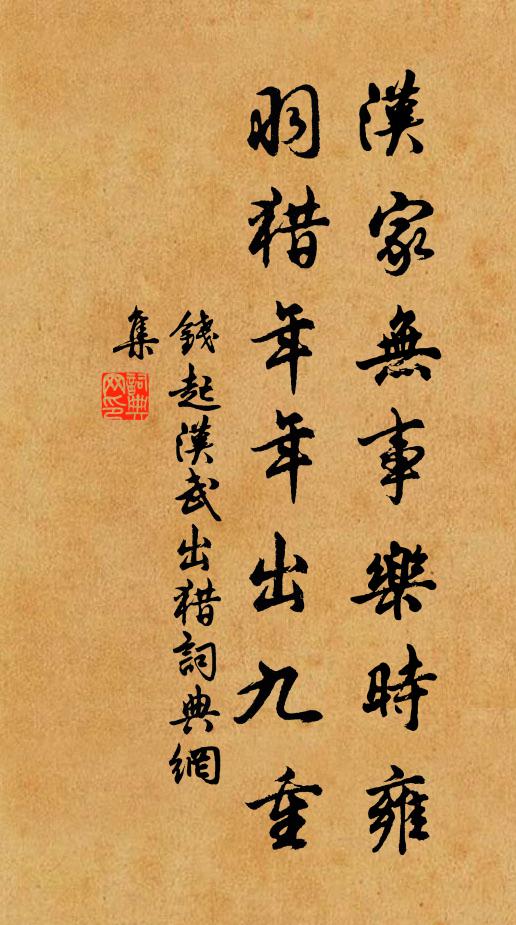 漢家無事樂時雍
羽猎年年出九重
錢起漢武出猎詞典網
集
詞典网印